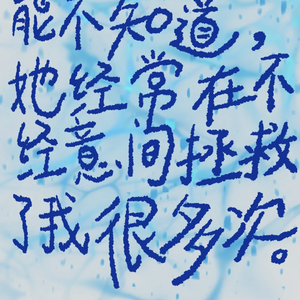 能不知道，
她经常在不
经意间拯救
了我很多次。